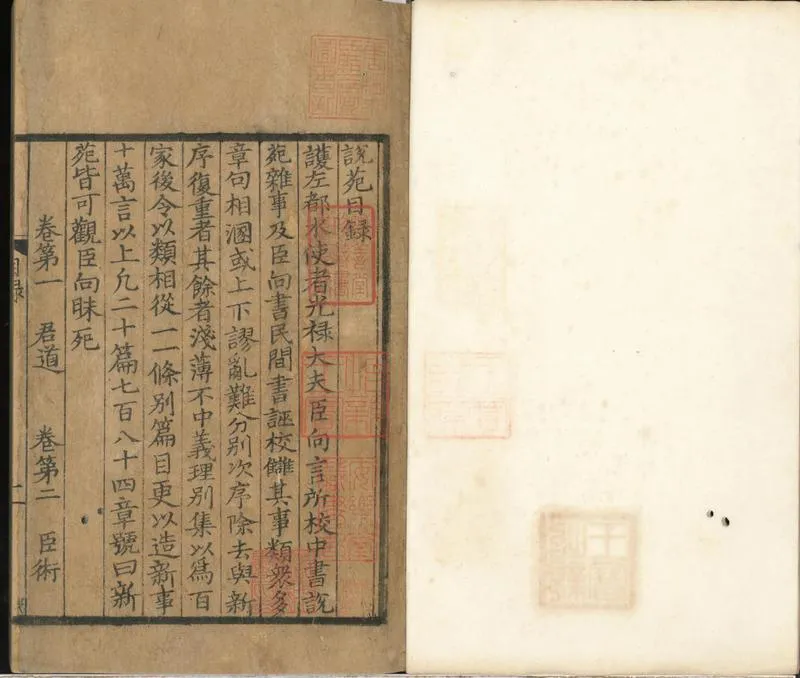 說苑目録
護左都水使者光禄大夫臣向言所校中書說
苑雜事及臣向書民間書誣校讎其事類衆多
章句相溷或上下謬亂難分别次序除去與新
序復重者其餘者淺薄不中義理别集以爲百
家後令以類相從一一條别篇目更以造新事
十萬言以上凡二十篇七百八十四章號曰新
苑皆可觀臣向昧死
卷第一 君道 卷第二 臣術
目録
二